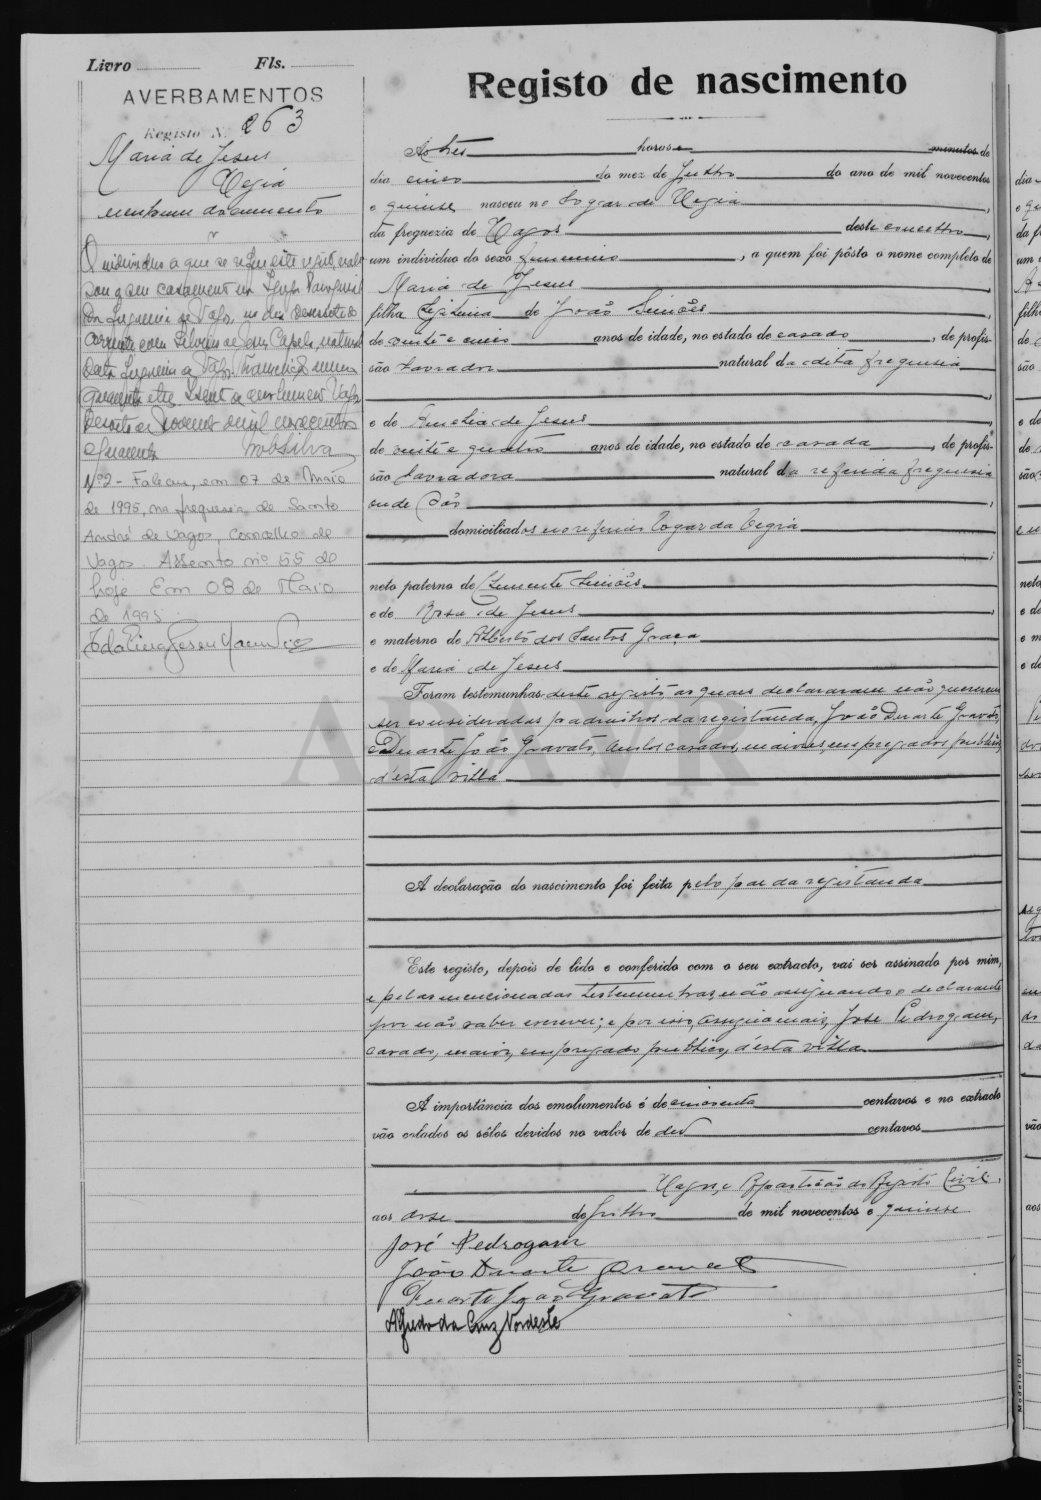 Livro Fls.
AVERBAMENTOS
Registo N. 263
Maria de Jesus
nenhum documento
O individuo a que se refere este registo
seu casamento na Igreja Paroquial
da freguesia de Vagos, no dia dezessete do
corrente com de Capela, natural
desta freguesia de Vagos
Vagos
Dezoito de mil novecentos
e quarenta
Nº2 - Faleceu, em 07 de Maio
de 1995, na freguesia de Santo
André de Vagos, Concelho de
Vagos. Assento nº 55 de
hoje. Em 08 de Maio
de 1995
Registo de nascimento
Ás três horas e minutos do
dia cinco do mez de Julho do ano de mil novecentos
e quinse nasceu no logar de
da freguezia de Vagos deste concelho,
um individuo do sexo feminino, a quem foi pôsto o nome completo de
Maria de Jesus
filha legitima de João Simões
de vinte e cinco anos de idade, no estado de casado, de profis-
são lavrador natural da dita freguesia
e de Amelia de Jesus
de vinte e quatro anos de idade, no estado de casada, de profis-
são lavradora natural da referida freguesia
onde são
domiciliados no referido logar da
neto paterno de Clemente Simões
e de Rosa de Jesus
e materno de Alberto dos Santos Graça
e de Maria de Jesus
Foram testemunhas deste registo, as quaes declararam não quererem
ser consideradas padrinhos da registanda, João Duarte Gravato,
e Duarte João Gravato, ambos casados, maiores, empregados publicos,
d'esta villa
ADAVR
A declaração do nascimento foi feita pelo pae da registanda
Este registo, depois de lido e conferido com o seu extracto, vai ser assinado por mim,
e pelas mencionadas testemunhas, não assignando o declarante
por não saber escrever; e por isso, assigna mais, José Pedrogam,
casado, maior, empregado publico, d'esta villa
A importância dos emolumentos é de cincoenta centavos e no extracto
vão colados os sêlos devidos no valor de dez centavos
Vagos, e Repartição do Registo Civil,
aos doze de Julho de mil novecentos e quinse
José Pedrogam
João Duarte Gravato
Duarte João Gravato
Alfredo da Cruz Nordeste
Modelo 101